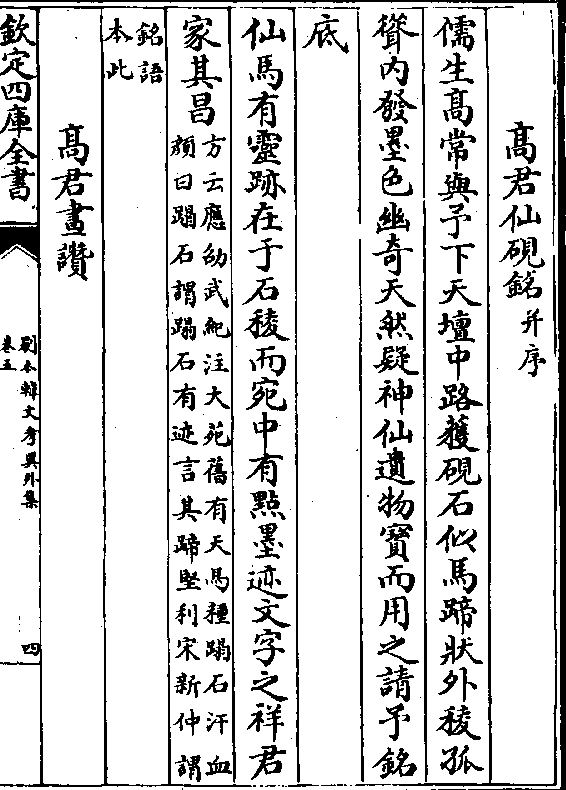 高君仙硯銘并序
儒生髙常與予下天壇中路獲硯石似馬蹄狀外稜孤
聳内發墨色幽竒天然疑神仙遺物寶而用之請予銘
底
仙馬有靈跡在于石稜而宛中有點墨迹文字之祥君
家其昌
方云應劭武紀注大苑舊有天馬種蹋石汗血
顔曰蹋石謂蹋石有迹言其蹄堅利宋新仲謂
銘語
本此
髙君畫讚
欽定四庫全書
别本韓文考異外集
卷五
四